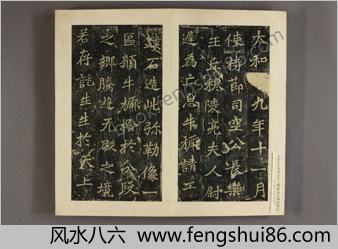 太和十九年十一月
使持節司空公長樂
王丘穆陵亮夫人尉
遲為亡息牛橛請工
鏤石造此弥勒像一
區願牛橛捨於分段
之鄉騰遊无礙之境
若存託生生於天上
风水八六 www.fengshui86.com